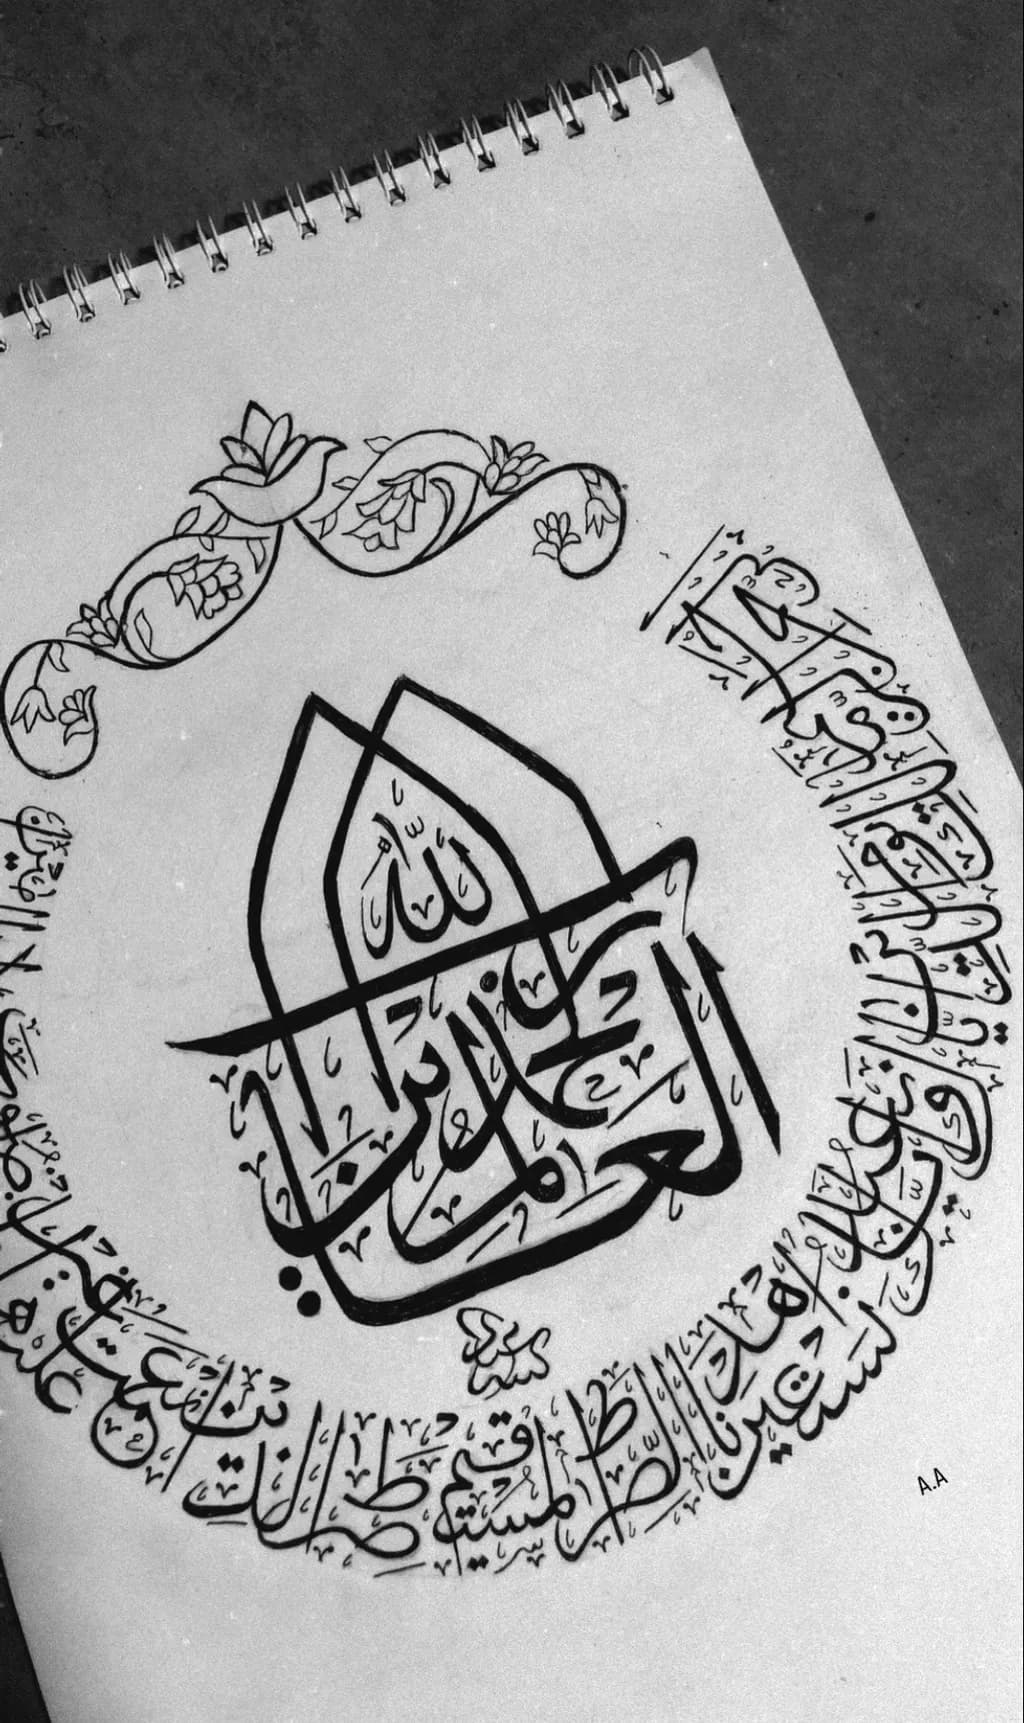 الحمد لله رب العالمين
الرحمن الرحيم ملك يوم الدين إياك نعبد وإياك نستعين اهدنا الصراط المستقيم صراط الذين أنعمت عليهم غير المغضوب ولا الضالين
A.A